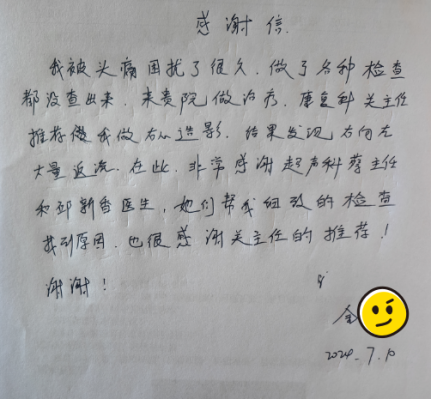 感谢信
我被头痛困扰了很久.做了各种检查
都没查出来.来贵院做治疗.康复科关主任
推荐我做右心造影.结果发现右向左
大量返流.在此.非常感谢超声科蔡主任
和邓新香医生,她们帮我细致的检查
找到原因.也很感谢关主任的推荐!
谢谢!
金
2024.7.10